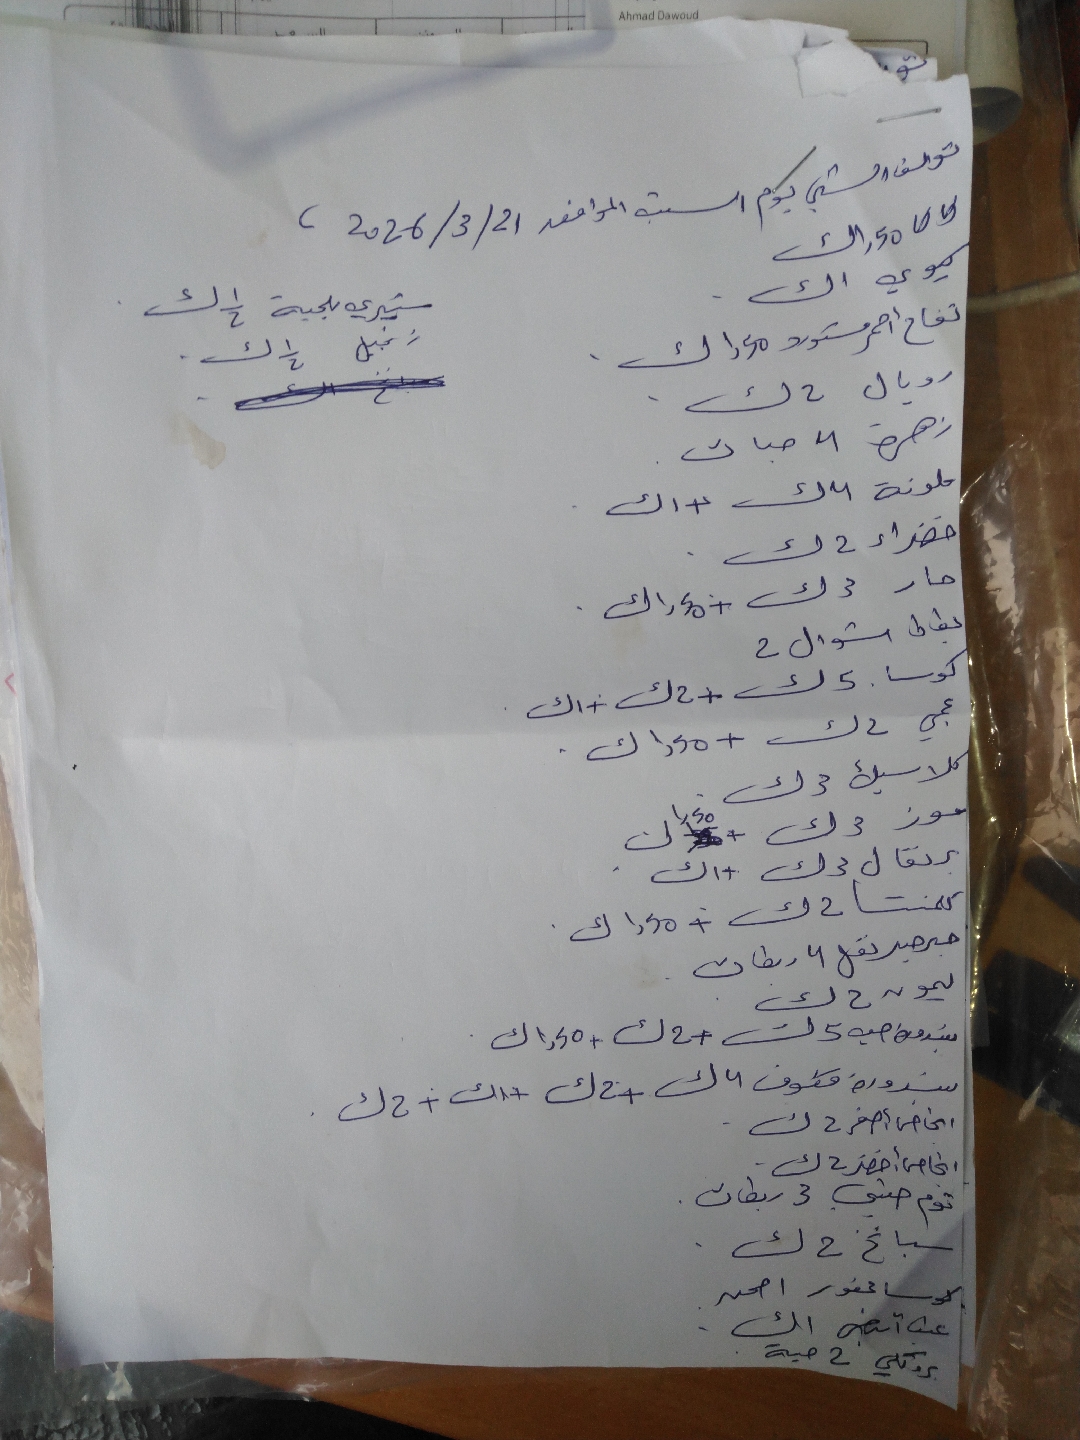 Ahmad Dawoud
توالف الشبي يوم السبت الموافق 2026/3/21
كاكا 1,50ك
كيوي 1ك
تفاح أحمر مستورد 1,50ك
رويال 2ك
زهرة 4 حبات
ملونة 4ك + 1ك
خضراء 2ك
حار 3ك + 1,50ك
بطاطا شوال 2
كوسا 5ك + 2ك + 1ك
عجمي 2ك + 1,50ك
كلاسيك 3ك
موز 3ك + 1,50ك
برتقال 3ك + 1ك
كلمنتا 2ك + 1,50ك
جرجير نقل 4 ربطات
ليمون 2ك
بندورة حبه 5ك + 2ك + 1,50ك
بندورة مكتوف 4ك + 2ك + 1ك + 2ك
انجاص أصفر 2ك
انجاص أخضر 2ك
توم صيني 3 ربطات
سبانخ 2ك
كوسا محفور
عنب أبيض 1ك
بروكلي 2 حبة
شيري بلجبة 1/2ك
زنجبيل 1/2ك